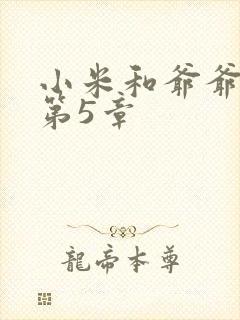 小米和爷爷
第5章
龍帝本尊